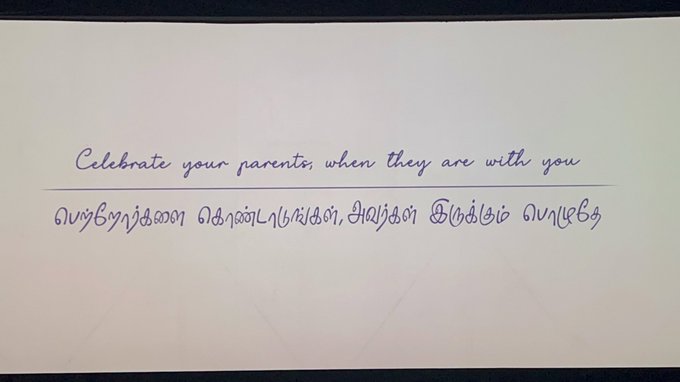 Celebrate your parents, when they are with you
பெற்றோர்களை கொண்டாடுங்கள், அவர்கள் இருக்கும் பொழுதே